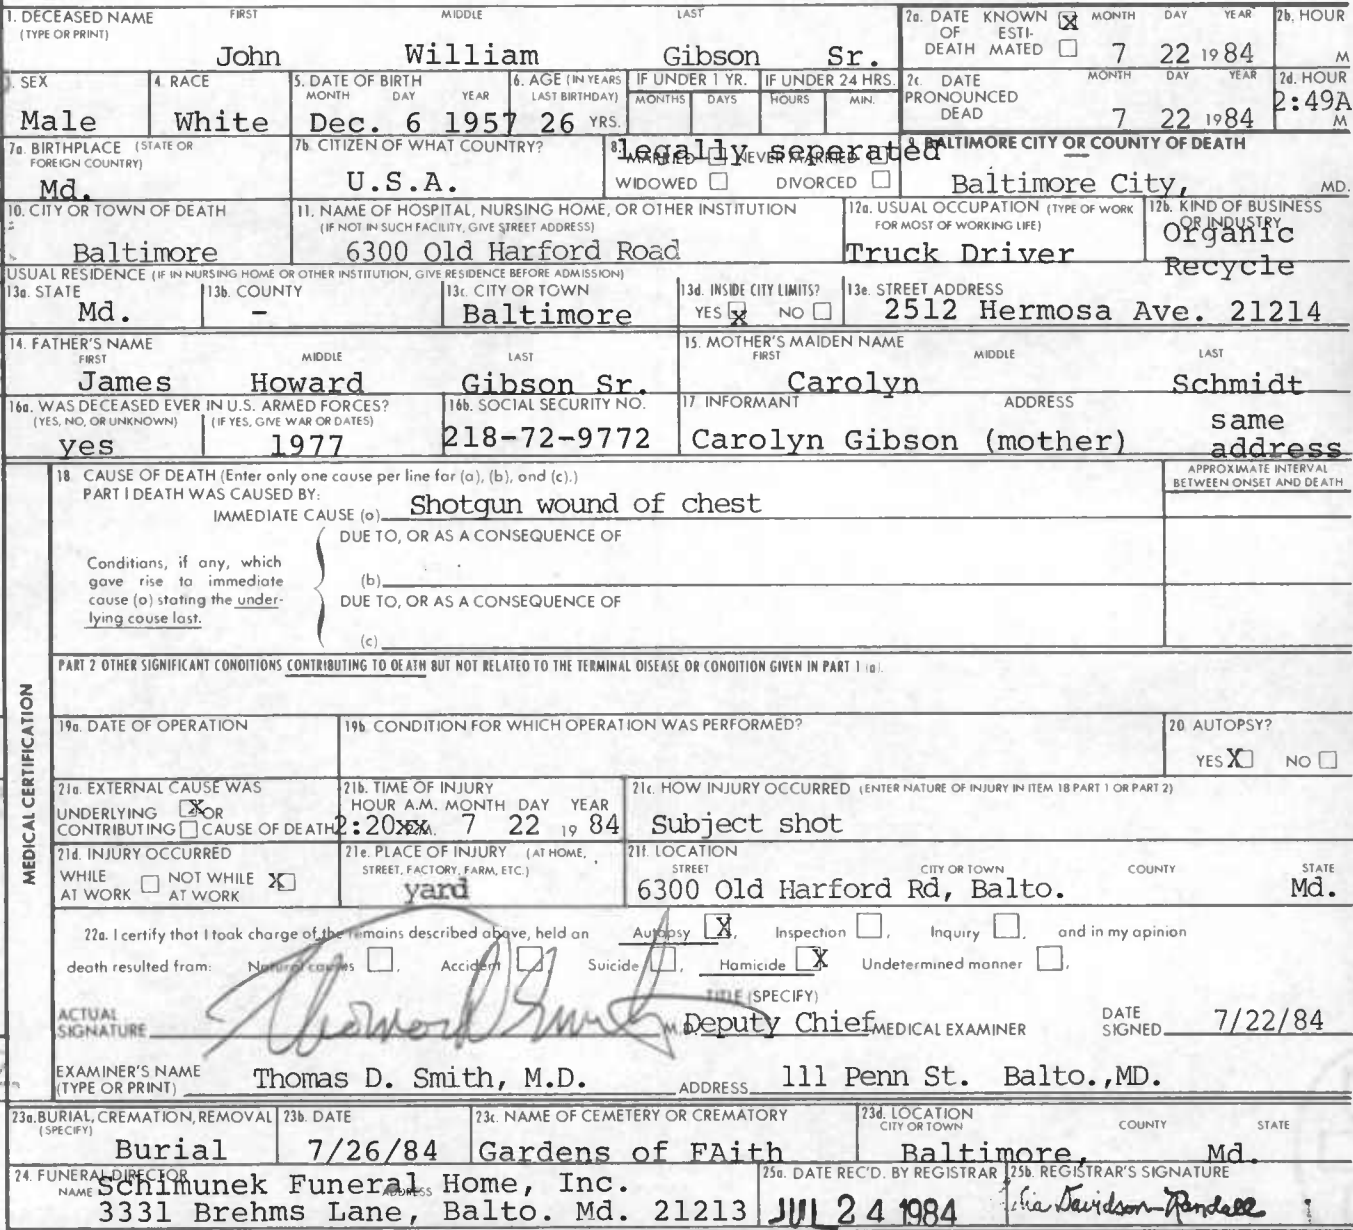 1. DECEASED NAME (TYPE OR PRINT) FIRST MIDDLE LAST
John William Gibson Sr.
2a. DATE OF DEATH KNOWN X ESTIMATED MONTH DAY YEAR
7 22 1984
2b. HOUR M
3. SEX
Male
4. RACE
White
5. DATE OF BIRTH MONTH DAY YEAR
Dec. 6 1957
6. AGE (IN YEARS LAST BIRTHDAY)
26 YRS.
IF UNDER 1 YR. MONTHS DAYS
IF UNDER 24 HRS. HOURS MIN.
2c. DATE PRONOUNCED DEAD MONTH DAY YEAR
7 22 1984
2d. HOUR
2:49A M
7a. BIRTHPLACE (STATE OR FOREIGN COUNTRY)
Md.
7b. CITIZEN OF WHAT COUNTRY?
U.S.A.
8. MARRIED NEVER MARRIED
legally seperated
WIDOWED DIVORCED
9. BALTIMORE CITY OR COUNTY OF DEATH
Baltimore City, MD.
10. CITY OR TOWN OF DEATH
Baltimore
11. NAME OF HOSPITAL, NURSING HOME, OR OTHER INSTITUTION
(IF NOT IN SUCH FACILITY, GIVE STREET ADDRESS)
6300 Old Harford Road
12a. USUAL OCCUPATION (TYPE OF WORK FOR MOST OF WORKING LIFE)
Truck Driver
12b. KIND OF BUSINESS OR INDUSTRY
Organic
Recycle
USUAL RESIDENCE (IF IN NURSING HOME OR OTHER INSTITUTION, GIVE RESIDENCE BEFORE ADMISSION)
13a. STATE
Md.
13b. COUNTY
-
13c. CITY OR TOWN
Baltimore
13d. INSIDE CITY LIMITS?
YES X NO
13e. STREET ADDRESS
2512 Hermosa Ave. 21214
14. FATHER'S NAME FIRST MIDDLE LAST
James Howard Gibson Sr.
15. MOTHER'S MAIDEN NAME FIRST MIDDLE LAST
Carolyn Schmidt
16a. WAS DECEASED EVER IN U.S. ARMED FORCES?
(YES, NO, OR UNKNOWN) (IF YES, GIVE WAR OR DATES)
yes 1977
16b. SOCIAL SECURITY NO.
218-72-9772
17. INFORMANT ADDRESS
Carolyn Gibson (mother) same address
MEDICAL CERTIFICATION
18. CAUSE OF DEATH (Enter only one cause per line for (a), (b), and (c).)
APPROXIMATE INTERVAL BETWEEN ONSET AND DEATH
PART I DEATH WAS CAUSED BY:
IMMEDIATE CAUSE (a) Shotgun wound of chest
DUE TO, OR AS A CONSEQUENCE OF
Conditions, if any, which gave rise to immediate cause (a) stating the underlying cause last.
(b)
DUE TO, OR AS A CONSEQUENCE OF
(c)
PART 2 OTHER SIGNIFICANT CONDITIONS CONTRIBUTING TO DEATH BUT NOT RELATED TO THE TERMINAL DISEASE OR CONDITION GIVEN IN PART 1 (a).
19a. DATE OF OPERATION
19b. CONDITION FOR WHICH OPERATION WAS PERFORMED?
20. AUTOPSY?
YES X NO
21a. EXTERNAL CAUSE WAS
UNDERLYING X OR
CONTRIBUTING CAUSE OF DEATH
21b. TIME OF INJURY
HOUR A.M. MONTH DAY YEAR
2:20xx P.M. 7 22 1984
21c. HOW INJURY OCCURRED (ENTER NATURE OF INJURY IN ITEM 18 PART 1 OR PART 2)
Subject shot
21d. INJURY OCCURRED
WHILE AT WORK NOT WHILE AT WORK X
21e. PLACE OF INJURY (AT HOME, STREET, FACTORY, FARM, ETC.)
yard
21f. LOCATION
STREET CITY OR TOWN COUNTY STATE
6300 Old Harford Rd, Balto. Md.
22a. I certify that I took charge of the remains described above, held an Autopsy X, Inspection, Inquiry, and in my opinion
death resulted from: Natural causes, Accident, Suicide, Homicide X Undetermined manner.
ACTUAL SIGNATURE Thomas D Smith M.D.
TITLE (SPECIFY)
Deputy Chief MEDICAL EXAMINER
DATE SIGNED 7/22/84
EXAMINER'S NAME (TYPE OR PRINT) Thomas D. Smith, M.D.
ADDRESS 111 Penn St. Balto.,MD.
23a. BURIAL, CREMATION, REMOVAL (SPECIFY)
Burial
23b. DATE
7/26/84
23c. NAME OF CEMETERY OR CREMATORY
Gardens of FAith
23d. LOCATION CITY OR TOWN COUNTY STATE
Baltimore, Md.
24. FUNERAL DIRECTOR
NAME Schimunek Funeral Home, Inc.
ADDRESS 3331 Brehms Lane, Balto. Md. 21213
25a. DATE REC'D. BY REGISTRAR
JUL 24 1984
25b. REGISTRAR'S SIGNATURE
Davidson-Randall